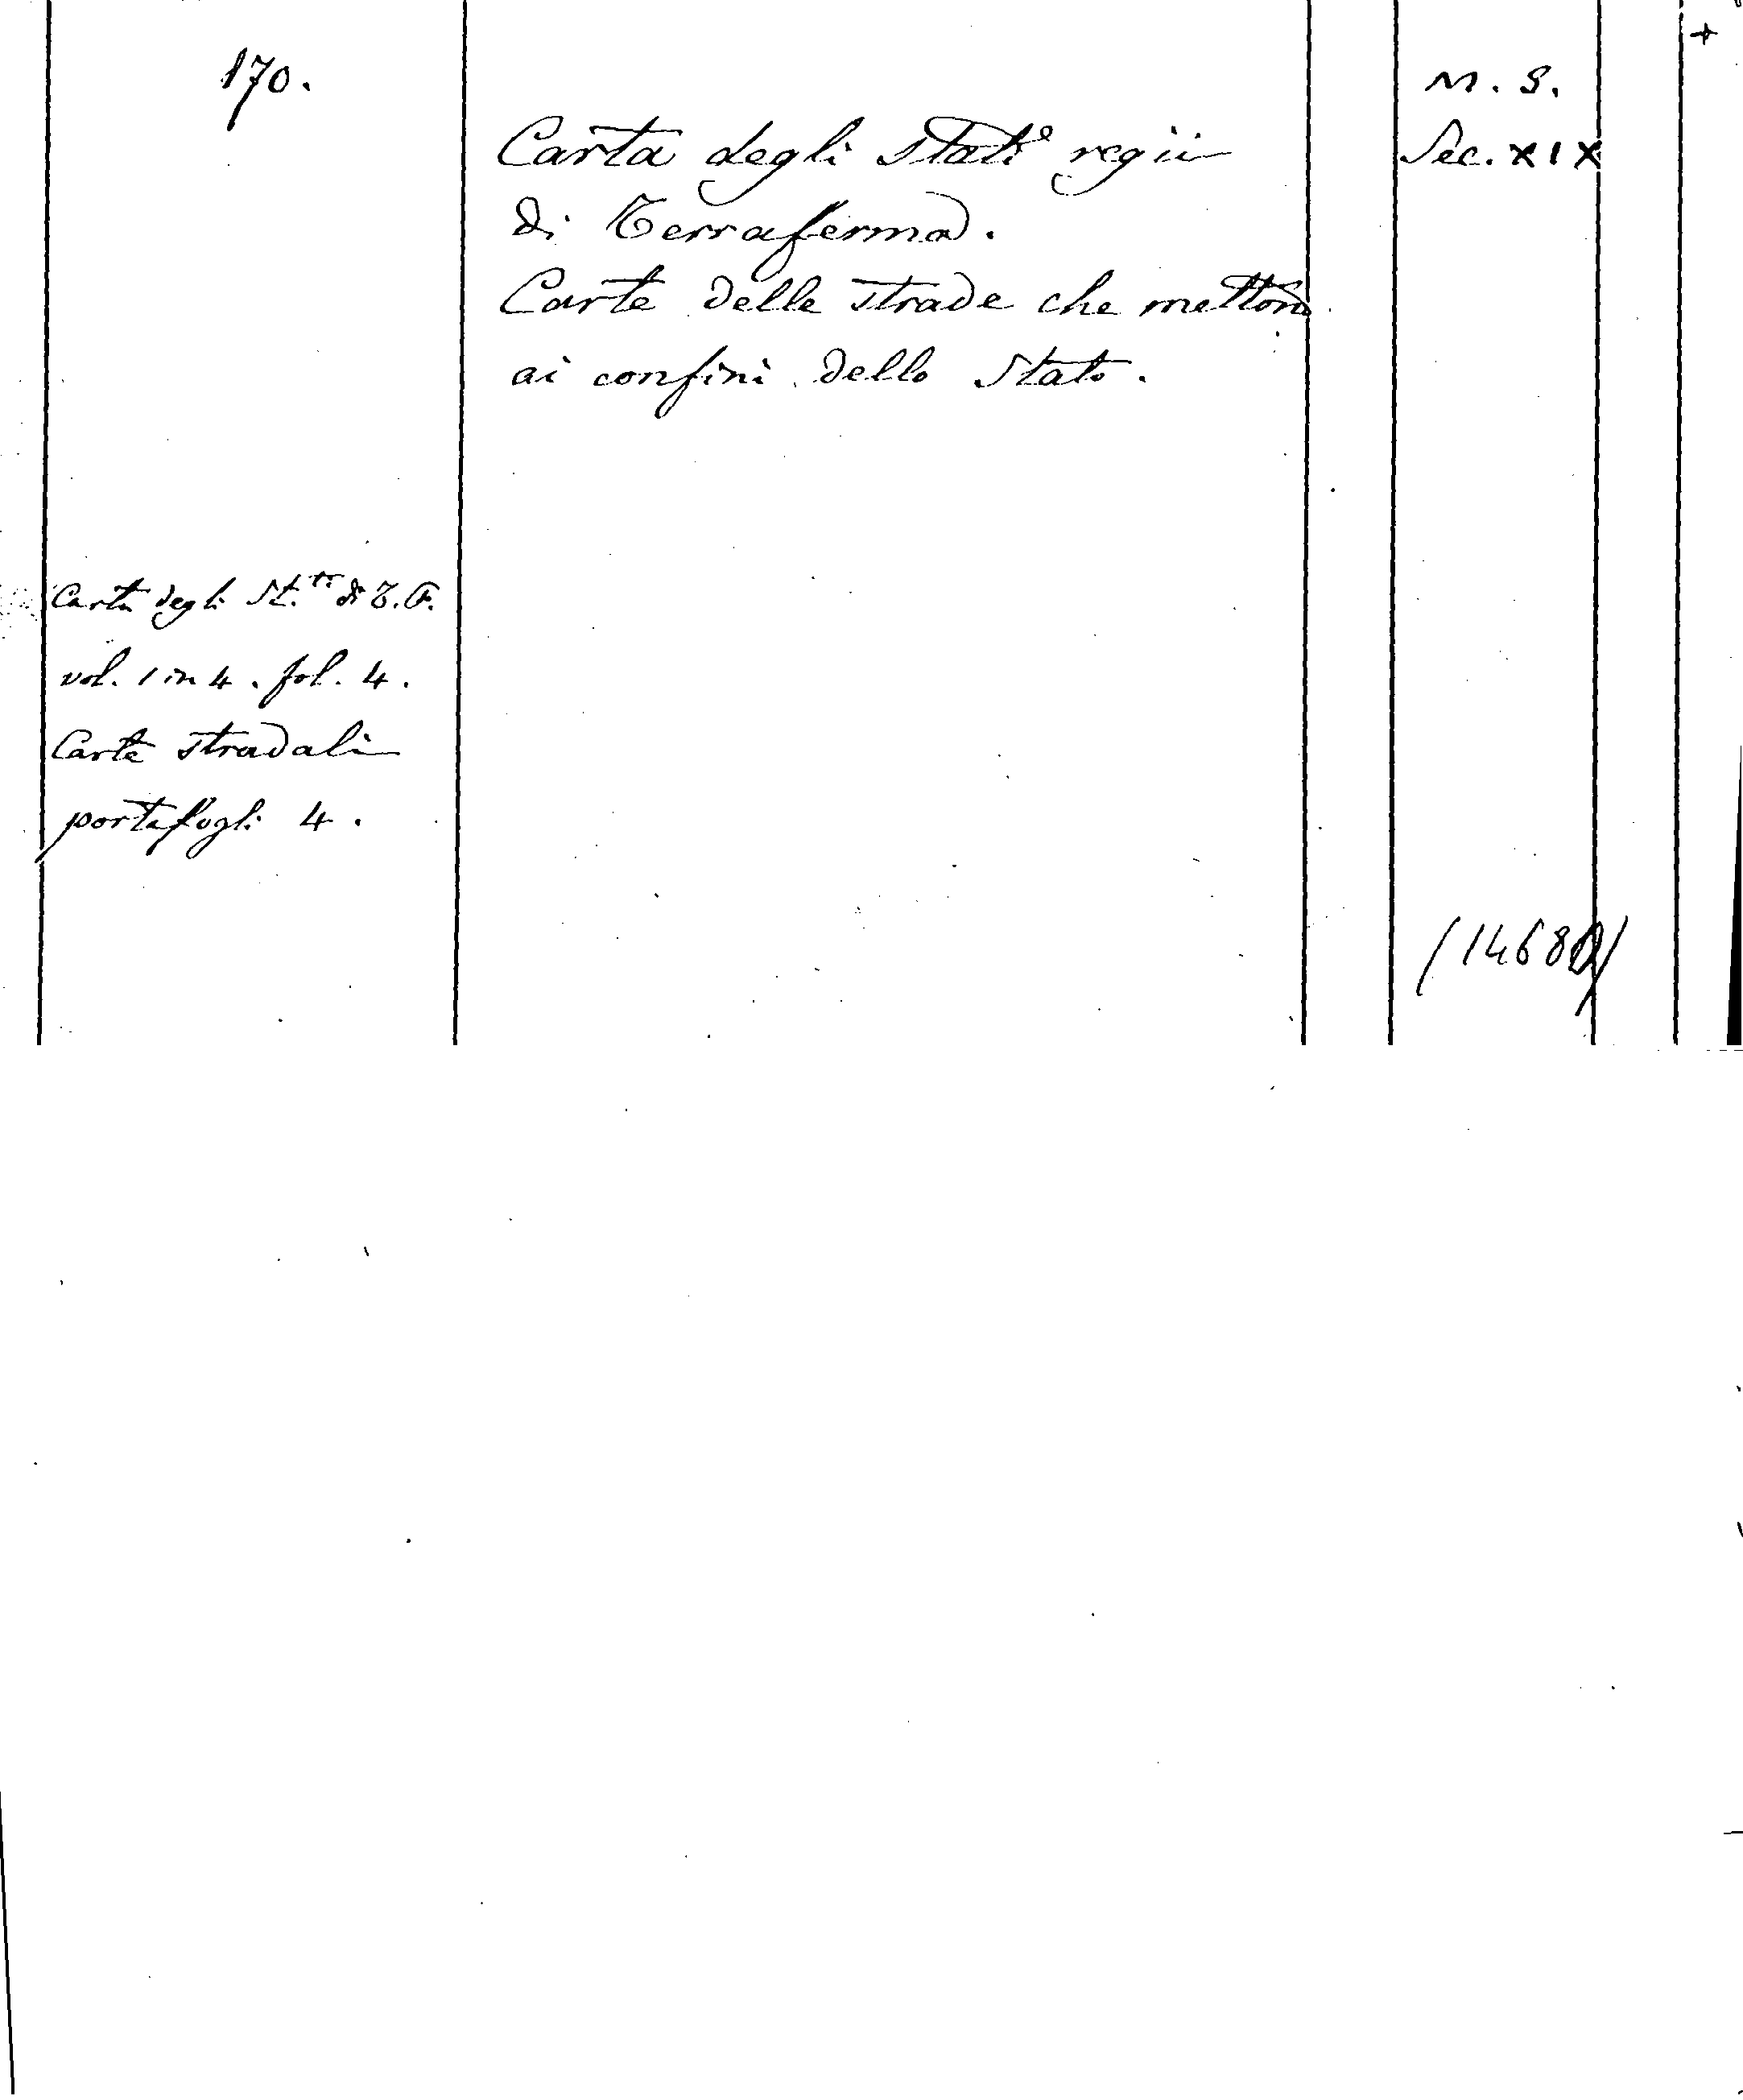 170.
Carta degli Stati regii
di Terraferma.
Carte delle strade che mettono
ai confini dello Stato.
M. S.
Sec. XIX
Carta degli St.ti di T. F.
vol. 1 in 4. fol. 4.
Carte stradali
portafogli 4.
(14680)